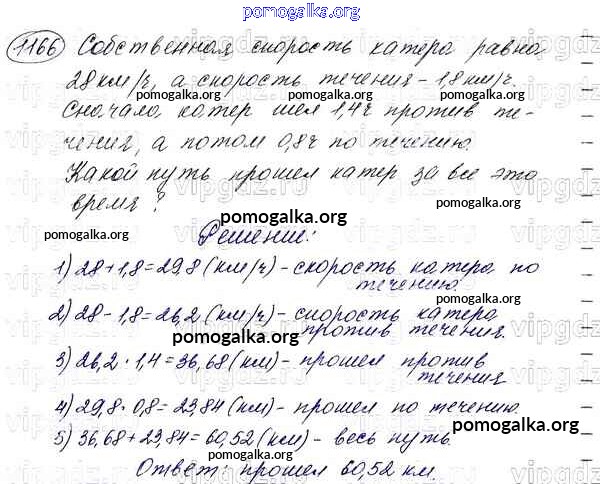 pomogalka.org
1166 Собственная скорость катера равна
28 км/ч, а скорость течения - 1,8 км/ч.
pomogalka.org pomogalka.org
Сначала катер шел 1,4ч против те-
чения, а потом 0,8ч по течению.
pomogalka.org pomogalka.org
Какой путь прошел катер за все это
время?
pomogalka.org
pomogalka.org
Решение:
1) 28+1,8=29,8 (км/ч) - скорость катера по
течению.
pomogalka.org
2) 28-1,8=26,2 (км/ч) - скорость катера
против течения.
pomogalka.org
3) 26,2 · 1,4=36,68 (км) - прошел против
течения
pomogalka.org
4) 29,8 · 0,8=23,84 (км) - прошел по течению.
pomogalka.org
5) 36,68+23,84=60,52 (км) - весь путь.
pomogalka.org
Ответ: прошел 60,52 км.